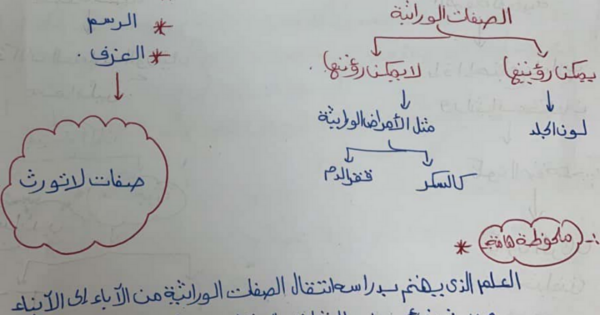 الصفات الوراثية
يمكن رؤيتها
لا يمكن رؤيتها.
لون الجلد
مثل الأمراض الوراثية
كالسكر
فقر الدم
* الرسم
* العزف
صفات لا تورث
ملحوظة هامة :-
*
العلم الذي يهتم بدراسه انتقال الصفات الوراثية من الآباء إلى الأبناء